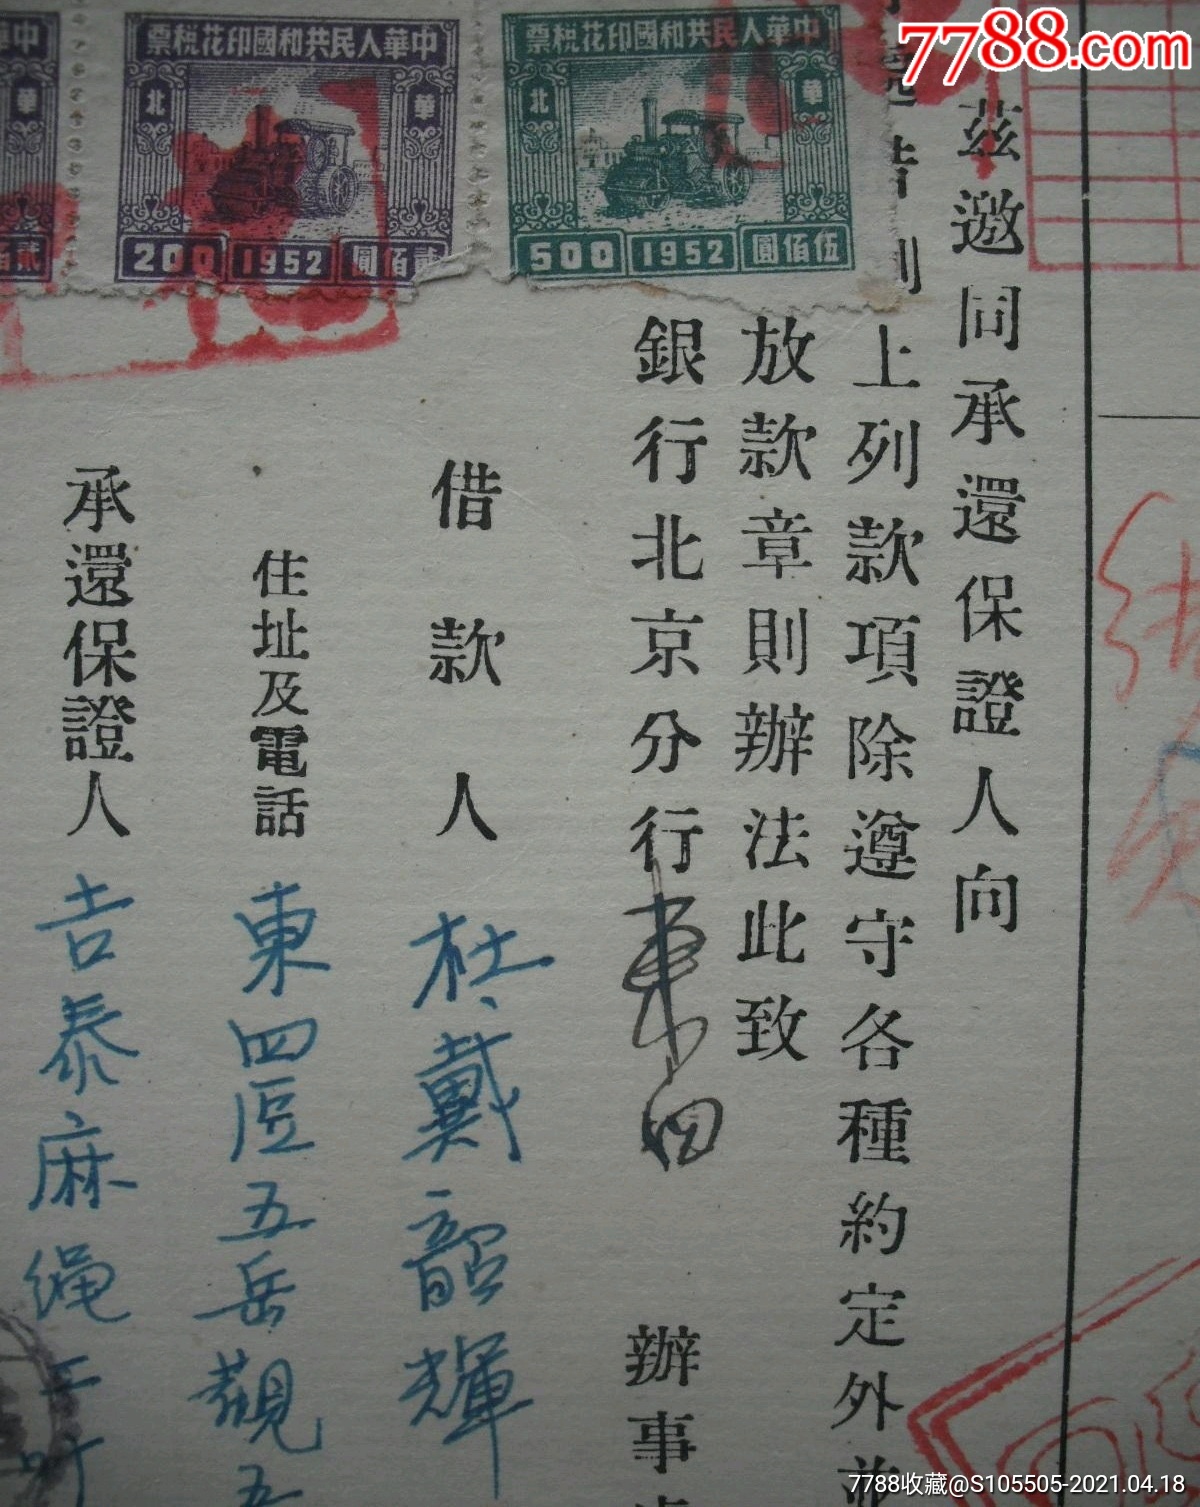 7788.com
茲邀同承還保證人向
上列款項除遵守各種約定外並
放款章則辦法此致
銀行北京分行東四 辦事
借款人 杜戴韶輝
住址及電話 東四區五岳觀五
承還保證人 吉泰麻绳
票稅花印國和共民人華中
北 華
200 1952 圓佰貳
票稅花印國和共民人華中
北 華
500 1952 圓佰伍
佰貳
7788收藏@S105505-2021.04.18